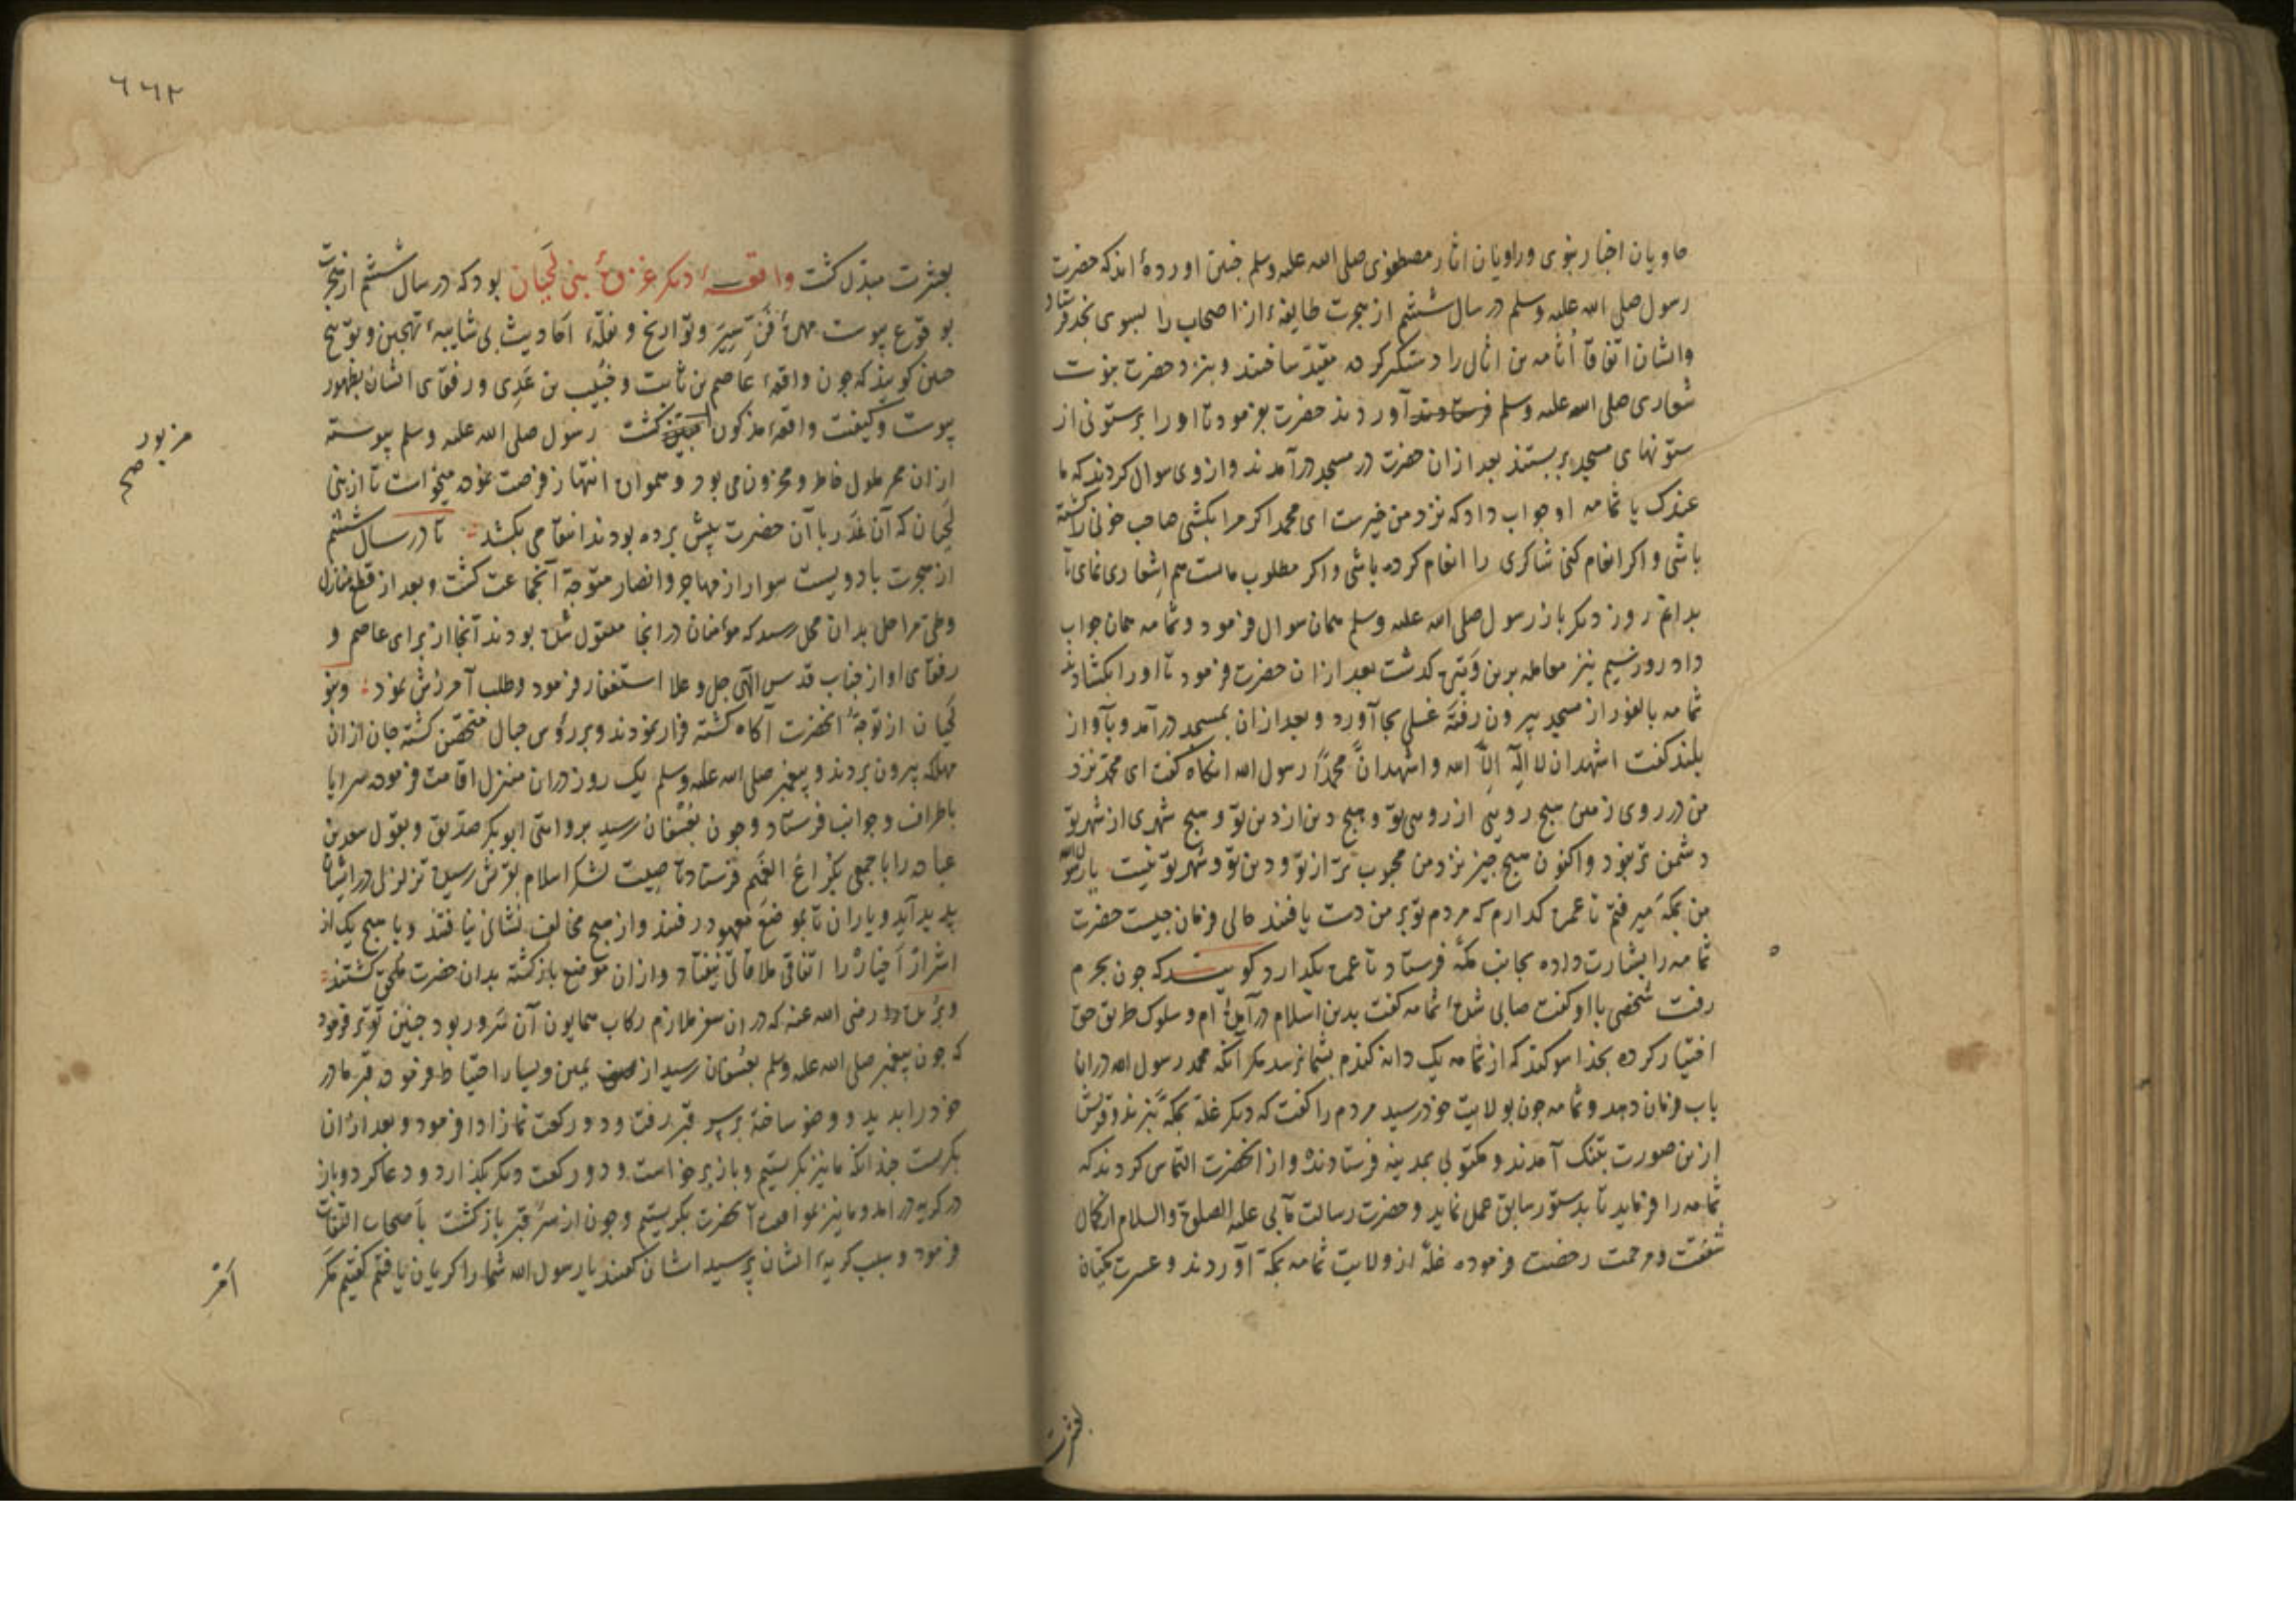 حاویان اخبار نبوی و راویان اثار مصطفوی صلی الله علیه وسلم چنین اورده‌ٔ اند که حضرت
رسول صلی الله علیه وسلم در سال ششم از هجرت طایفهٔ از اصحاب را بسوی نجد فرستاد
وایشان اتفاقاً ثمامه بن اثال را دستگیر کرده مقیّد ساختند و بنزد حضرت نبوت
شعاری صلی الله علیه وسلم آوردند حضرت بفرمود تا او را بر ستونی از
ستونهای مسجد بربستند بعد ازان حضرت در مسجد درآمدند و از وی سوال کردند که ما
عندک یا ثمامه او جواب داد که نزد من خیرست ای محمد اکر مرا بکشی صاحب خونی را کشته
باشی و اکر انعام کنی شاکری را انعام کرده باشی و اکر مطلوب مالست هم اشعاری نمای تا
بدانم روز دیکر باز رسول صلی الله علیه وسلم همان سوال فرمود و ثمامه همان جواب
داد روز سیم نیز معامله برین کذشت بعد ازان حضرت فرمود تا او را بکشادند
ثمامه بالفور از مسجد بیرون رفته غسلی بجا آورد و بعد ازان بمسجد درآمد و بآواز
بلند کفت اشهد ان لا اله الّا الله و اشهد انّ محمّداً رسول الله انکاه کفت ای محمّد نزد
من در روی زمین هیچ رویی از روی تو و هیچ دین از دین تو و هیچ شهری از شهر تو
دشمن تر نبود و اکنون هیچ چیز نزد من محبوب تر از تو و دین تو و شهر تو نیست یا رسول الله
من بمکّه میرفتم تا عمره کذارم که مردم تو بر من دست یافتند حالی فرمان چیست حضرت
ثمامه را بشارت داده بجانب مکّه فرستاد تا عمره بکذارد کویند که چون بحرم
رفت شخصی با او کفت صابی شدهٔ ثمامه کفت بدین اسلام درآمدهٔ ام و سلوک طریق حق
اختیار کرده بخدا سوکند که از ثمامه یک دانه کندم بشما نرسد مکر آنکه محمد رسول الله دران
باب فرمان دهد و ثمامه چون بولایت خود رسید مردم را کفت که دیکر غلّه بمکّه نبرند و قریش
ازین صورت بتنک آمدند و مکتوبی بمدینه فرستادند و از انحضرت التماس کردند که
ثمامه را فرماید تا بدستور سابق عمل نماید و حضرت رسالت مآبی علیه الصلوة والسلام از کمال
شفقت و مرحمت رخصت فرموده غلّه از ولایت ثمامه بمکّه آوردند و عسرت مکیان
٦٦٢
مبدّل کشت واقعهٔ دیکر غزوهٔ بنی لَحیان بود که در سال ششم از هجرت
بوقوع پیوست فنّ سِیَر و تواریخ و نقلهٔ احادیث بی شایبهٔ تهجین و توبیخ
چنین کویند که چون واقعهٔ عاصم بن ثابت و خُبَیب بن عَدِی و رفقای ایشان بظهور
پیوست و کیفیت واقعهٔ مذکور کشت رسول صلی الله علیه وسلم پیوسته
مزبور
صح
ازان ممر ملول خاطر و محزون می بود و انتهاز فرصت نموده میخواست تا از بنی
لَحیان که آن غَدْر با آن حضرت پیش برده بودند انتقامی بکشد تا در سال ششم
از هجرت با دویست سوار از مهاجر و انصار متوجّه آنجماعت کشت و بعد از قطع منازل
و طی مراحل بدان محل رسید که مؤمنان درانجا مقتول شده بودند آنجا از برای عاصم و
رفقای او از جناب قدس الهی جل و علا استغفار فرمود و طلب آمرزش نمود و بنو
لَحیان از توجّه انحضرت آکاه کشته فرار نمودند و بر رؤس جبال متحصّن کشته جان ازان
مهلکه بیرون بردند و پیغمبر صلی الله علیه وسلم یک روز دران منزل اقامت فرموده سرایا
باطراف و جوانب فرستاد و چون بعُسْفان رسید بروایتی ابو بکر صدّیق و بقول سعد بن
عباده را با جمعی بکُراعُ الغَمیم فرستاد تا صیت لشکر اسلام بقریش رسیده تزلزلی در ایشان
پدید آید و یاران تا بموضع معهود رفتند و از هیچ مخالف نشانی نیافتند و با هیچ یک از
اشرار اَخیار را اتفاق ملاقاتی نیفتاد و ازان موضع بازکشته بدان حضرت ملحق کشتند
رضی الله عنه که دران سفر ملازم رکاب همایون آن سَرور بود چنین تقریر فرمود
که چون پیغمبر صلی الله علیه وسلم بعُسفان رسید از یمین و یسار احتیاط فرموده قبر مادر
خود را بدید و وضو ساخته بر سر قبر رفت و دو رکعت نماز ادا فرمود و بعد ازان
بکریست چندانکه ما نیز بکریستیم و باز برخواست و دو رکعت دیکر بکذارد و دعا کرد و باز
در کریه درامد و ما نیز بموافقت آنحضرت بکریستیم و چون از سر قبر بازکشت باصحاب التفات
فرمود و سبب کریهٔ ایشان پرسید ایشان کفتند یا رسول الله شما را کریان یافتیم کفتیم مکر